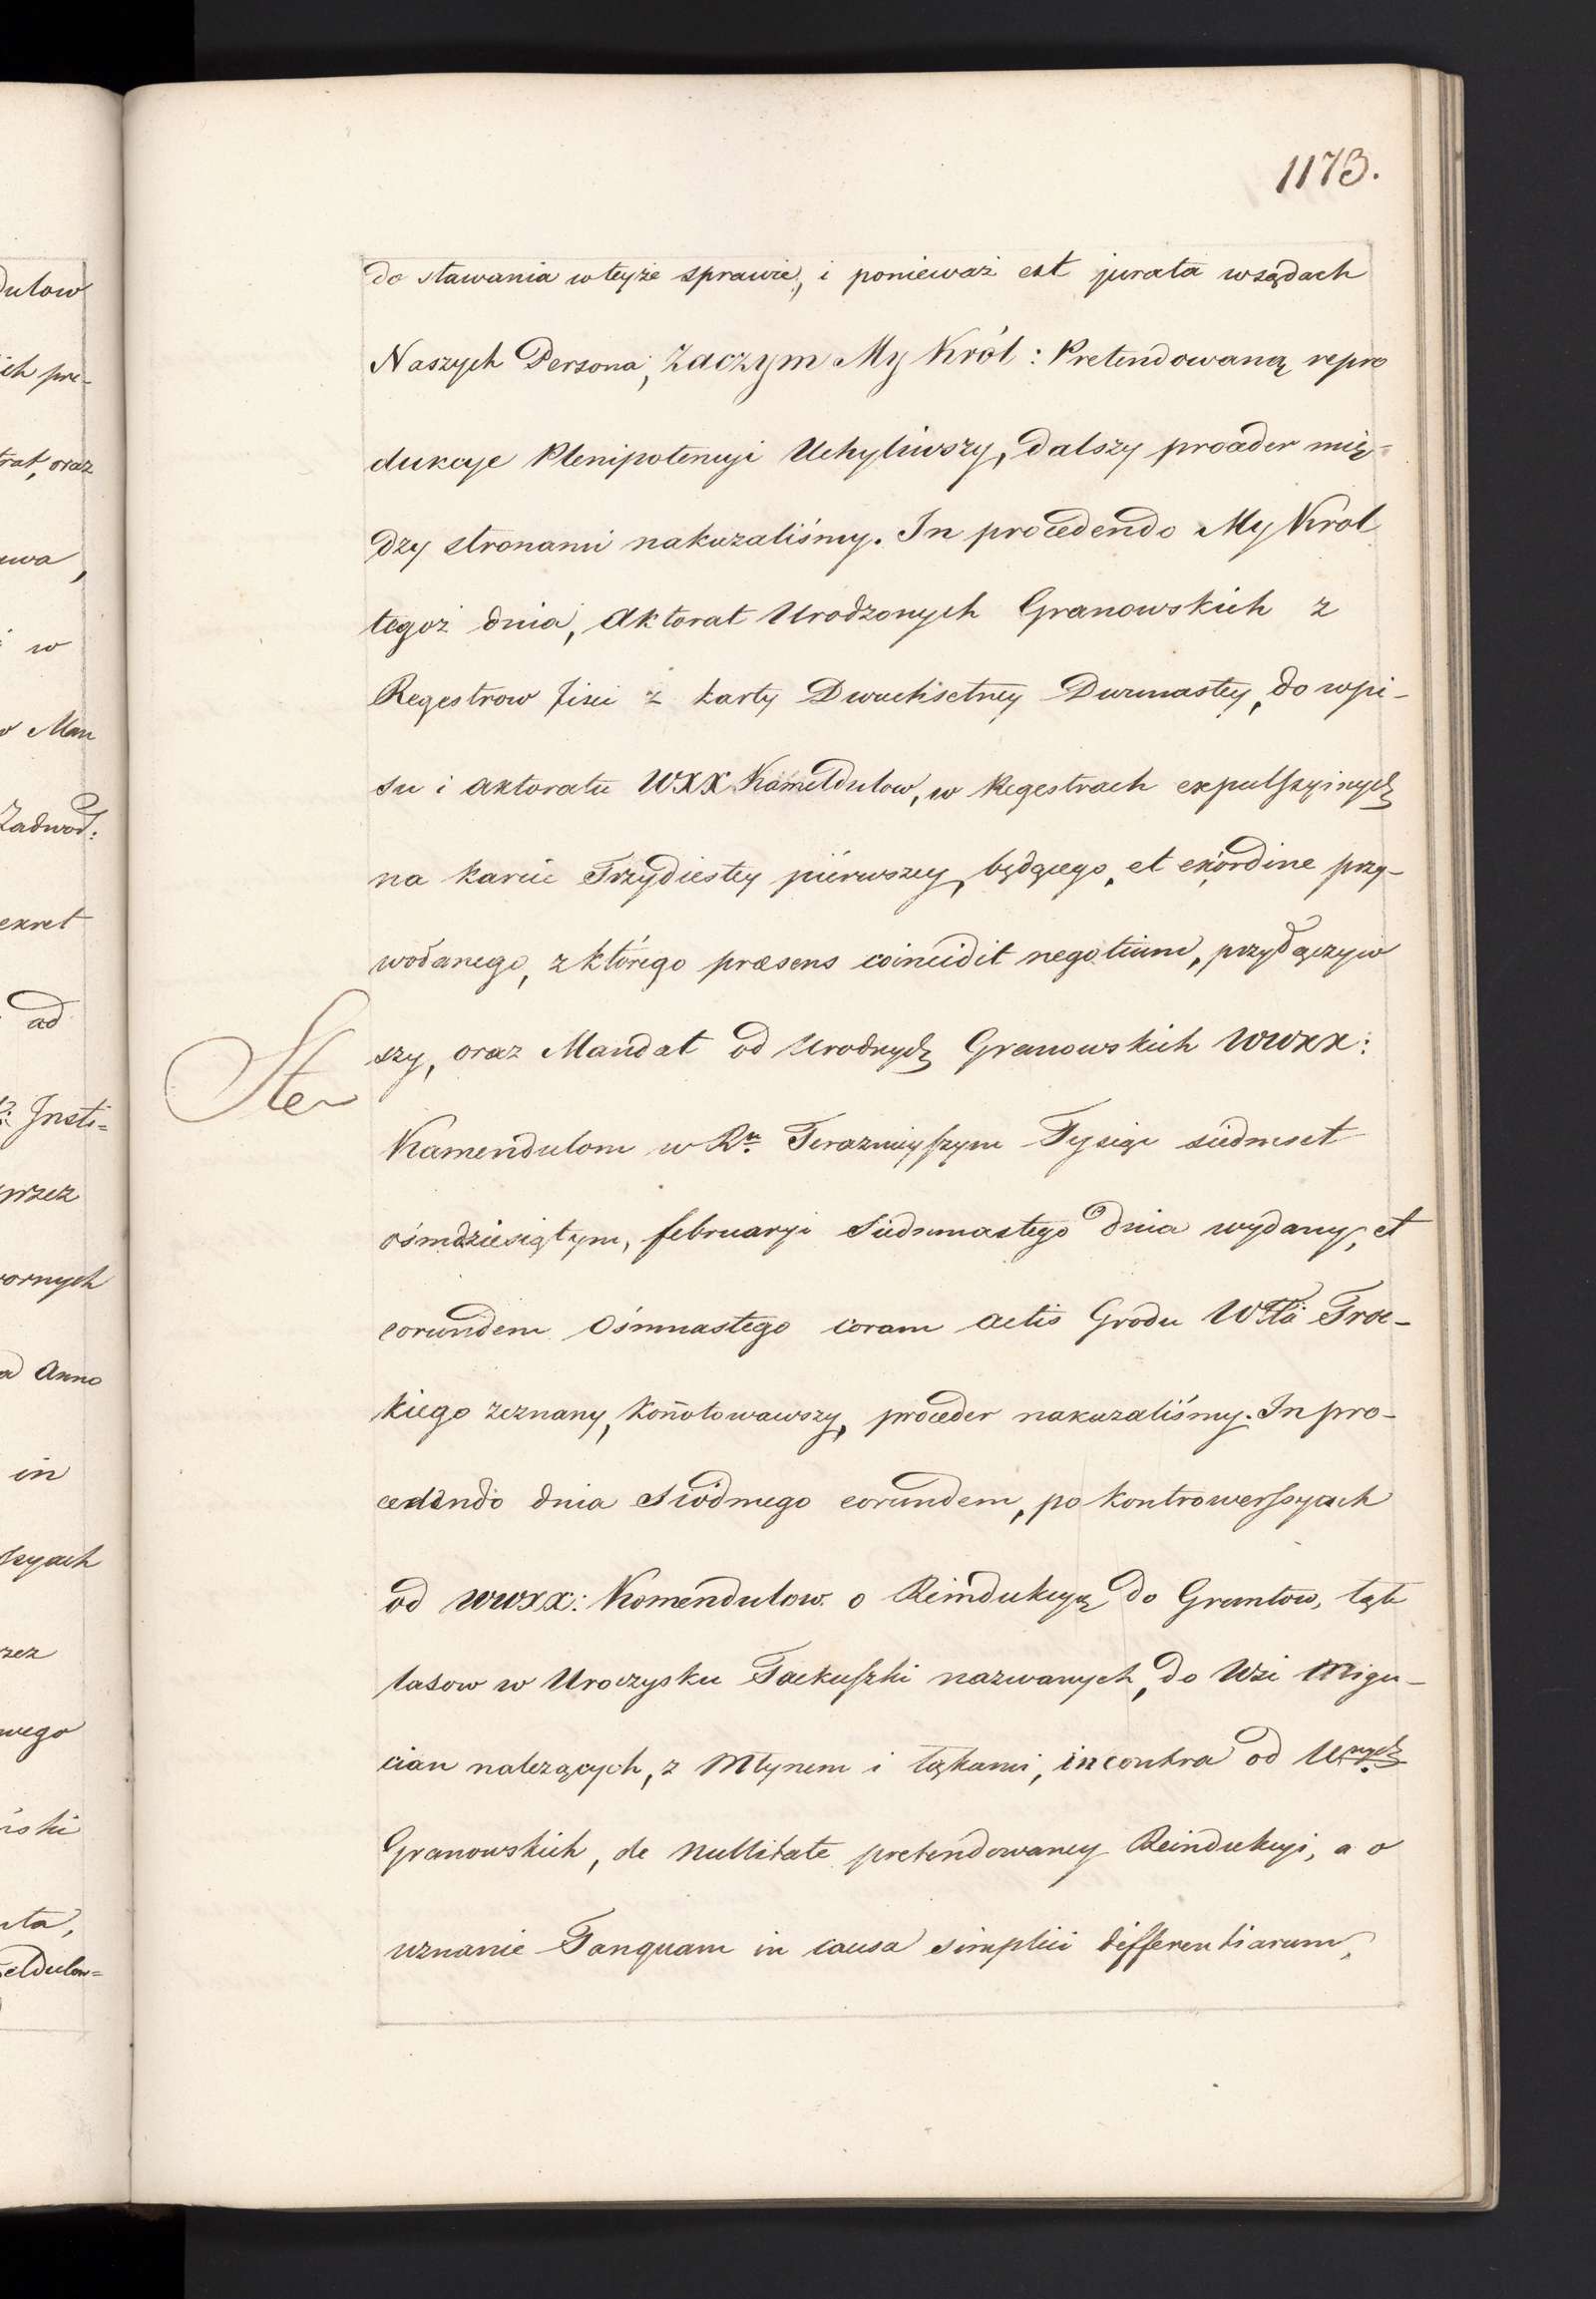 1173.
do stawania wteyże sprawie, i ponieważ est jurata wsądach
Naszych Persona, Zaczym My Król: Pretendowaną repro
dukcye Plenipotencyi Uchyliwszy, dalszy proceder mię-
dzy stronami nakazaliśmy. In procedendo My Krol
tegoż dnia, Aktorat Urodzonych Granowskich z
Regestrow fisci z karty Dwuchsetney Dwunastey, do wpi-
su i aktoratu WXX Kameldulow, w Regestrach expulsyinych
na karcie Trzydiestey piérwszey, będącego, et ex ordine przy-
wołanego, z którego praesens coincidit negotium, przyłączyw
szy, oraz Mandat od Urodnych Granowskich WWXX:
Kamendulom w Ru. Terazniejszym Tysiąc siedmset
ośmdziesiątym, februaryi Siedmnastego dnia wydany, et
eorundem Ośmnastego coram actis Grodu Wttà Troc-
kiego zeznany, konotowawszy, proceder nakazaliśmy. In pro-
cedendo dnia Siódmego eorundem, po kontrowersyach
od WWXX: Komendulow o Reindukcyą do Gruntow, łąk
lasow w Uroczysku Tackuszki nazwanych, do Wsi Migu-
cian należących, z Młynem i łąkami, incontra od Unych
Granowskich, de Nullitate pretendowaney Reindukcyi, a o
uznanie Tanquam in causa simplici differentiarum,